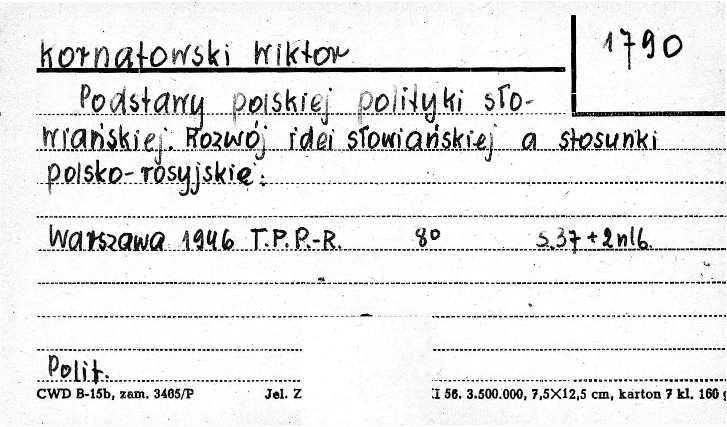 Kornatowski Wiktor
1790
Podstawy polskiej polityki sło-
wiańskiej. Rozwój idei słowiańskiej a stosunki
polsko-rosyjskie.
Warszawa 1946 T.P.P.-R. 8° s.37+2nlb.
Polit.
CWD B-15b, zam. 3465/P Jel. Z I 56. 3.500.000, 7,5×12,5 cm, karton 7 kl. 160 g